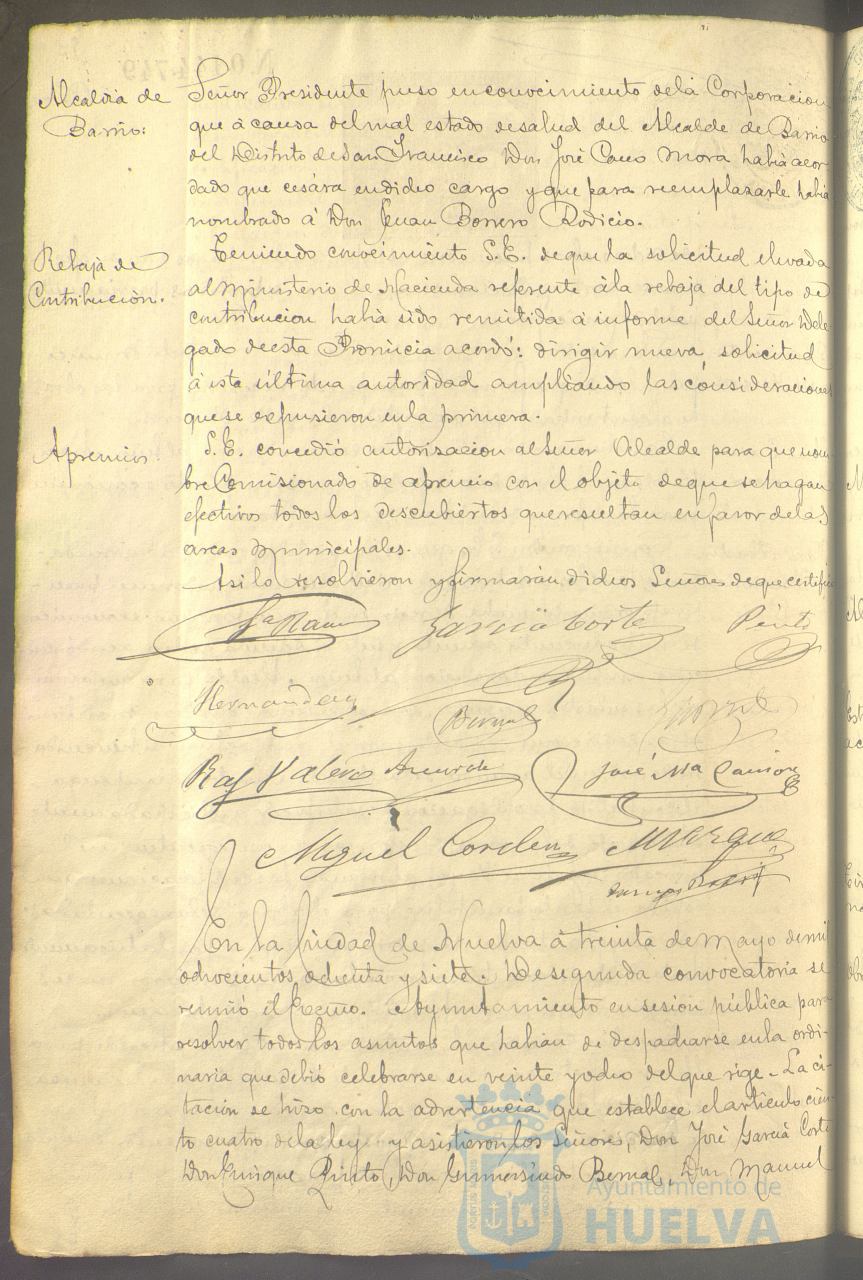 Alcaldia de
Barrio:
Señor Presidente puso en conocimiento de la Corporacion
que á causa del mal estado de salud del Alcalde de Barrio
del Distrito de San Francisco Don José Cano Mora habia acor-
dado que cesára en dicho cargo y que para reemplazarle habia
nombrado á Don Juan Borrero Rodicio.
Rebaja de
Contribución.
Teniendo conocimiento S.E. de que la solicitud elevada
al Ministerio de Hacienda referente á la rebaja del tipo de
contribucion habia sido remitida á informe del Señor Dele
gado de esta Provincia acordó: dirigir nueva solicitud
á esta última autoridad ampliando las consideraciones
que se expusieron en la primera.
Apremios.
S.E. concedió autorizacion al Señor Alcalde para que nom-
bre Comisionado de apremio con el objeto de que se hagan
efectivos todos los descubiertos que resultan en favor de las
arcas municipales.
Asi lo resolvieron y firmarán dichos Señores de que certifico
García Corte Pinto
Hernandez Bernal
Raf Valero José Ma
Miguel
En la Ciudad de Huelva á treinta de Mayo de mil
ochocientos ochenta y siete. De segunda convocatoria se
reunió el Excmo. Ayuntamiento en sesion pública para
resolver todos los asuntos que habian de despacharse en la ordi-
naria que debió celebrarse en veinte y ocho del que rige. La ci-
tación se hizo con la advertencia que establece el artículo cien-
to cuatro de la ley y asistieron los Señores, Don José García Corte
Don Enrique Pinto, Don Gumersindo Bernal, Don Manuel
Ayuntamiento de
HUELVA